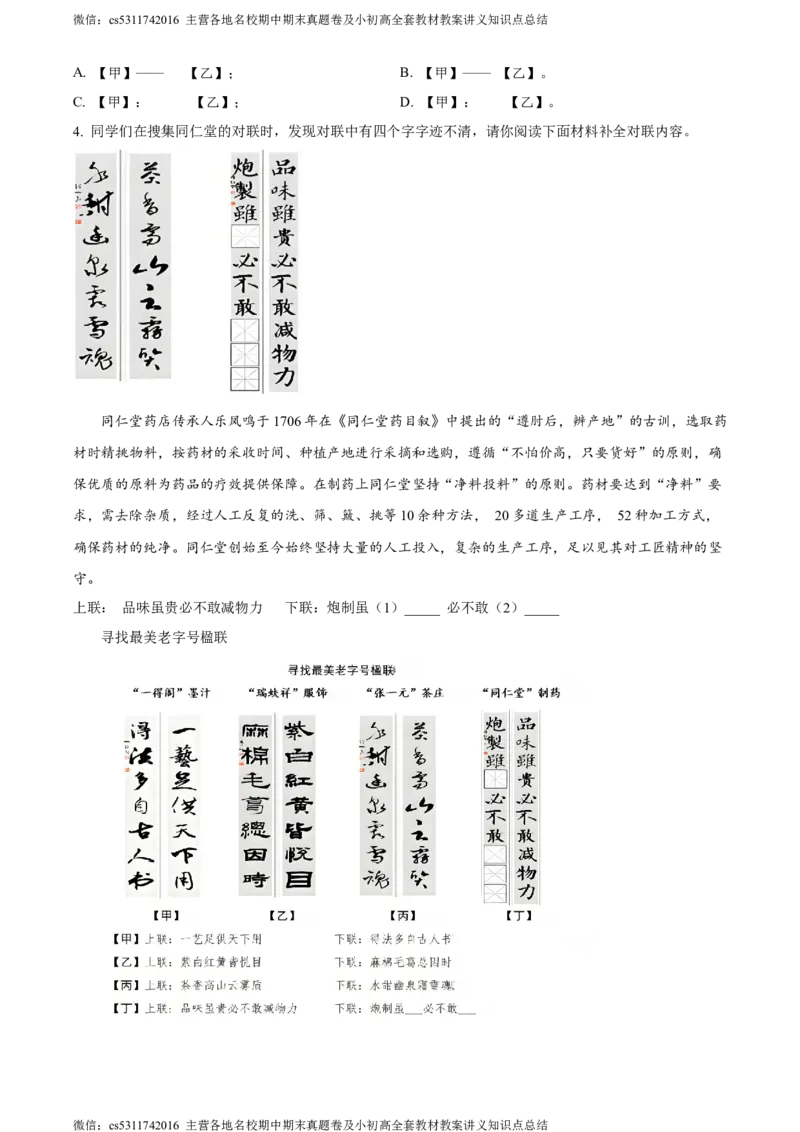 微信：cs5311742016 主营各地名校期中期末真题卷及小初高全套教材教案讲义知识点总结
A. 【甲】—— 【乙】； B. 【甲】—— 【乙】。
C. 【甲】： 【乙】； D. 【甲】： 【乙】。
4. 同学们在搜集同仁堂的对联时，发现对联中有四个字字迹不清，请你阅读下面材料补全对联内容。
茶香高山云霧質
水甜幽泉霜雪魂
品味雖貴必不敢减物力
炮製雖必不敢
同仁堂药店传承人乐凤鸣于1706年在《同仁堂药目叙》中提出的“遵肘后，辨产地”的古训，选取药
材时精挑物料，按药材的采收时间、种植产地进行采摘和选购，遵循“不怕价高，只要货好”的原则，确
保优质的原料为药品的疗效提供保障。在制药上同仁堂坚持“净料投料”的原则。药材要达到“净料”要
求，需去除杂质，经过人工反复的洗、筛、簸、挑等10余种方法， 20多道生产工序， 52种加工方式，
确保药材的纯净。同仁堂创始至今始终坚持大量的人工投入，复杂的生产工序，足以见其对工匠精神的坚
守。
上联： 品味虽贵必不敢减物力 下联：炮制虽（1）_____ 必不敢（2）_____
寻找最美老字号楹联
寻找最美老字号楹联
“一得阁”墨汁 “瑞蚨祥”服饰 “张一元”茶庄 “同仁堂”制药
一藝足供天下用
得法多自古人书
紫白紅黄皆悦目
麻棉毛葛總因時
茶香高山云霧質
水甜幽泉霜雪魂
品味雖貴必不敢减物力
炮製雖必不敢
【甲】 【乙】 【丙】 【丁】
【甲】上联：一艺足供天下用 下联：得法多自古人书
【乙】上联：紫白红黄皆悦目 下联：麻棉毛葛总因时
【丙】上联：茶香高山云雾质 下联：水甜幽泉霜雪魂
【丁】上联：品味虽贵必不敢减物力 下联：炮制虽___必不敢___
微信：cs5311742016 主营各地名校期中期末真题卷及小初高全套教材教案讲义知识点总结